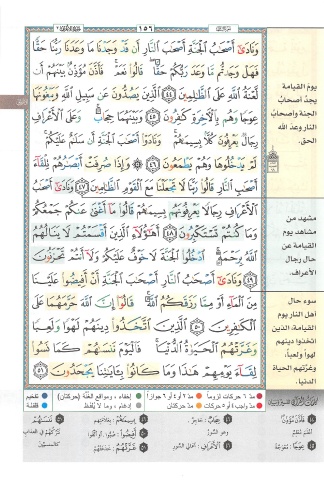 ١٥٦
وَنَادَىٰٓ أَصْحَٰبُ ٱلْجَنَّةِ أَصْحَٰبَ ٱلنَّارِ أَن قَدْ وَجَدْنَا مَا وَعَدَنَا رَبُّنَا حَقًّا
فَهَلْ وَجَدتُّم مَّا وَعَدَ رَبُّكُمْ حَقًّا ۖ قَالُوا۟ نَعَمْ ۚ فَأَذَّنَ مُؤَذِّنٌۢ بَيْنَهُمْ أَن
لَّعْنَةُ ٱللَّهِ عَلَى ٱلظَّٰلِمِينَ ٤٤ ٱلَّذِينَ يَصُدُّونَ عَن سَبِيلِ ٱللَّهِ وَيَبْغُونَهَا
عِوَجًا وَهُم بِٱلْءَاخِرَةِ كَٰفِرُونَ ٤٥ وَبَيْنَهُمَا حِجَابٌ ۚ وَعَلَى ٱلْأَعْرَافِ
رِجَالٌ يَعْرِفُونَ كُلًّۢا بِسِيمَىٰهُمْ ۚ وَنَادَوْا۟ أَصْحَٰبَ ٱلْجَنَّةِ أَن سَلَٰمٌ عَلَيْكُمْ ۚ
لَمْ يَدْخُلُوهَا وَهُمْ يَطْمَعُونَ ٤٦ ۞ وَإِذَا صُرِفَتْ أَبْصَٰرُهُمْ تِلْقَآءَ
أَصْحَٰبِ ٱلنَّارِ قَالُوا۟ رَبَّنَا لَا تَجْعَلْنَا مَعَ ٱلْقَوْمِ ٱلظَّٰلِمِينَ ٤٧ وَنَادَىٰٓ أَصْحَٰبُ
ٱلْأَعْرَافِ رِجَالًا يَعْرِفُونَهُم بِسِيمَىٰهُمْ قَالُوا۟ مَآ أَغْنَىٰ عَنكُمْ جَمْعُكُمْ
وَمَا كُنتُمْ تَسْتَكْبِرُونَ ٤٨ أَهَٰٓؤُلَآءِ ٱلَّذِينَ أَقْسَمْتُمْ لَا يَنَالُهُمُ
ٱللَّهُ بِرَحْمَةٍ ۚ ٱدْخُلُوا۟ ٱلْجَنَّةَ لَا خَوْفٌ عَلَيْكُمْ وَلَآ أَنتُمْ تَحْزَنُونَ
٤٩ وَنَادَىٰٓ أَصْحَٰبُ ٱلنَّارِ أَصْحَٰبَ ٱلْجَنَّةِ أَنْ أَفِيضُوا۟ عَلَيْنَا
مِنَ ٱلْمَآءِ أَوْ مِمَّا رَزَقَكُمُ ٱللَّهُ ۚ قَالُوٓا۟ إِنَّ ٱللَّهَ حَرَّمَهُمَا عَلَى
ٱلْكَٰفِرِينَ ٥٠ ٱلَّذِينَ ٱتَّخَذُوا۟ دِينَهُمْ لَهْوًا وَلَعِبًا
وَغَرَّتْهُمُ ٱلْحَيَوٰةُ ٱلدُّنْيَا ۚ فَٱلْيَوْمَ نَنسَىٰهُمْ كَمَا نَسُوا۟
لِقَآءَ يَوْمِهِمْ هَٰذَا وَمَا كَانُوا۟ بِـَٔايَٰتِنَا يَجْحَدُونَ ٥١
يوم القيامة
يجد أصحاب
الجنة وأصحاب
النار وعد الله
الحق.
مشهد من
مشاهد يوم
القيامة عن
حال رجال
الأعراف.
سوء حال
أهل النار يوم
القيامة، الذين
اتخذوا دينهم
لهواً ولعباً،
وغرتهم الحياة
الدنيا.
مد ٦ حركات لزوماً
مد ٢ أو ٤ أو ٦ جوازاً
إخفاء، ومواقع الغنة (حركتان)
تفخيم
مد واجب ٤ أو ٥ حركات
مد حركتان
إدغام، وما لا يلفظ
قلقلة